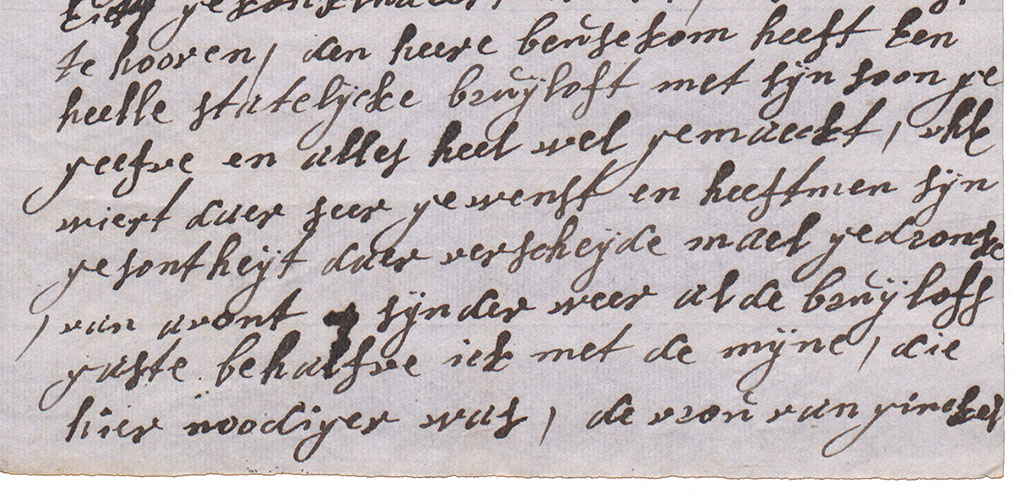 te hooren / den heere beusekom heeft Een
heelle statelijcke bruijloft met sijn soon ge
geefve en alles heel wel gemaeckt / uhE
wiert daer seer gewenst en heeftmen sijn
gesontheijt daer verscheijde mael gedroncke
/ van avont sijnder weer al de bruijlofs
gaste behalfve ick met de mijne / die
hier noodiger was / de vrou van ginckel